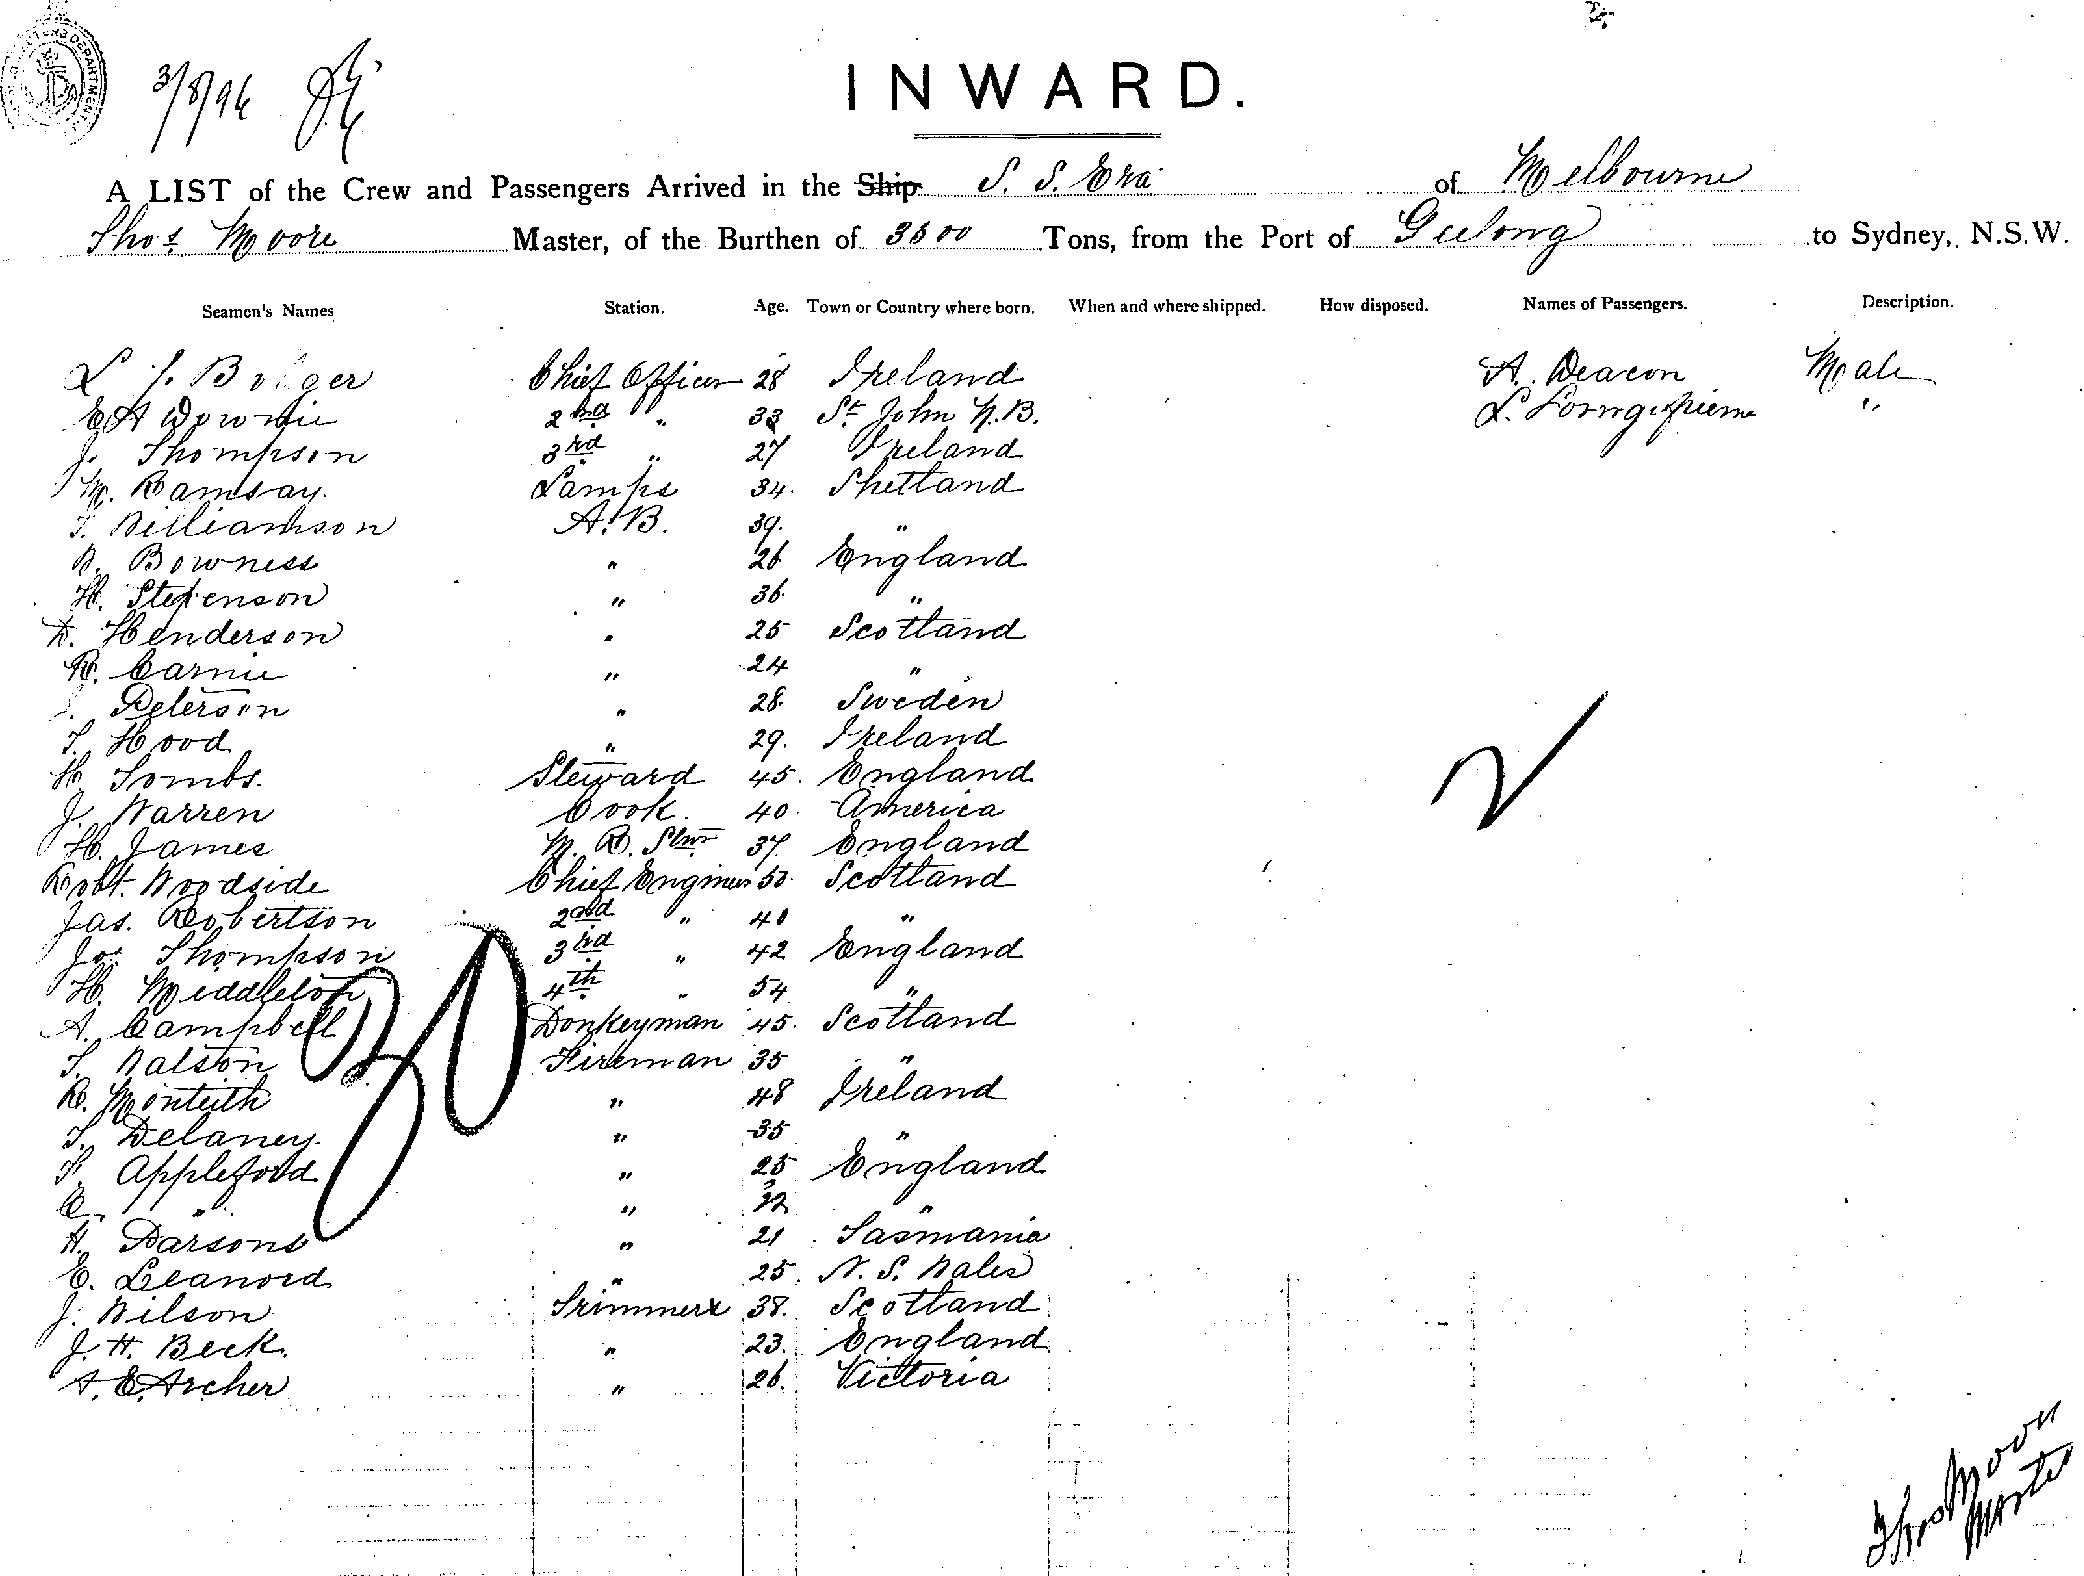 3/8/96
INWARD.
A LIST of the Crew and Passengers Arrived in the Ship S. S. Era of Melbourne
Thos Moore Master, of the Burthen of Tons, from the Port of Geelong to Sydney, N.S.W.
Seamen's Names Station. Age. Town or Country where born. When and where shipped. How disposed. Names of Passengers. Description.
Bolger Chief Officer 28 Ireland A. Deacon Male
E A Downie 2nd " 33 St John N.B. L. "
J. Thompson 3rd " 27 Ireland
M. Ramsay. Lamps 34. Shetland
T. Williamson A.B. 39. "
Bowness " 26 England
H. Stevenson " 36 "
D. Henderson " 25 Scotland
R. Carnie " 24 "
Peterson " 28. Sweden
T. Hood " 29. Ireland
H. Tombs. Steward 45. England
J. Warren Cook. 40. America
H. James M. R. Stwd 37 England
Robt. Woodside Chief Engineer Scotland
Jas. Robertson 2nd " "
Jos Thompson 3rd " 42 England
H. Middleton 4th " 54 "
A. Campbell Donkeyman 45. Scotland
T. Watson Fireman 35 "
R. Monteith " 48 Ireland
T. Delaney. " 35 "
Appleford " 25 England
C. " " "
H. Parsons " 21 Tasmania
E. Leanord " 25. N. S. Wales
J. Wilson Trimmer 38. Scotland
J. H. Beck. " 23. England
A. E. Archer " 26. Victoria
30
2
Thos Moore
Master